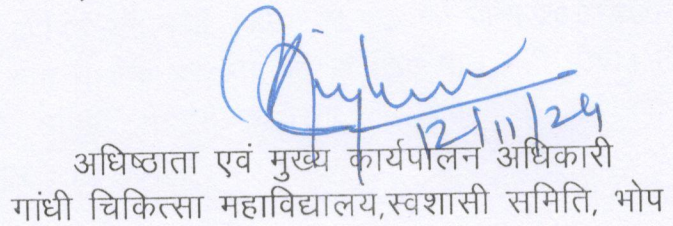 12/11/24
अधिष्ठाता एवं मुख्य कार्यपालन अधिकारी
गांधी चिकित्सा महाविद्यालय,स्वशासी समिति, भोप